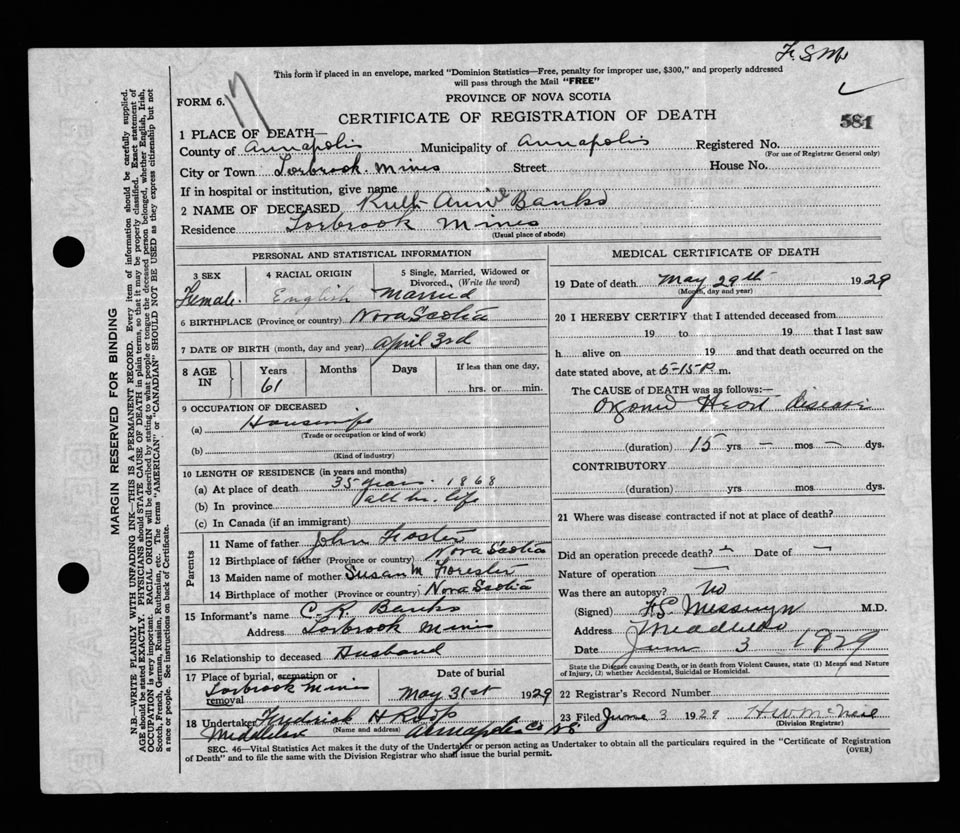 F.S.M.
This form if placed in an envelope, marked "Dominion Statistics—Free, penalty for improper use, $300," and properly addressed
will pass through the Mail "FREE"
FORM 6.
17
PROVINCE OF NOVA SCOTIA
CERTIFICATE OF REGISTRATION OF DEATH
581
1 PLACE OF DEATH—
County of Annapolis Municipality of Annapolis Registered No.
(For use of Registrar General only)
City or Town Torbrook Mines Street House No.
If in hospital or institution, give name
2 NAME OF DECEASED Ruth Annie Banks
Residence Torbrook Mines
(Usual place of abode)
PERSONAL AND STATISTICAL INFORMATION
3 SEX 4 RACIAL ORIGIN 5 Single, Married, Widowed or
Divorced. (Write the word)
Female. English Married
6 BIRTHPLACE (Province or country) Nova Scotia
7 DATE OF BIRTH (month, day and year) April 3rd
8 AGE IN Years Months Days If less than one day,
61 hrs. or min.
9 OCCUPATION OF DECEASED
(a) Housewife
(Trade or occupation or kind of work)
(b)
(Kind of industry)
10 LENGTH OF RESIDENCE (in years and months)
(a) At place of death 35 years. 1868
(b) In province all her life
(c) In Canada (if an immigrant)
Parents
11 Name of father John Foster
12 Birthplace of father (Province or country) Nova Scotia
13 Maiden name of mother Susan M Forester
14 Birthplace of mother (Province or country) Nova Scotia
15 Informant's name C. R. Banks
Address Torbrook Mines
16 Relationship to deceased Husband
17 Place of burial, cremation or removal Date of burial
Torbrook Mines May 31st 1929
18 Undertaker Fredrick H Roop
(Name and address)
Middleton Annapolis Co NS
MEDICAL CERTIFICATE OF DEATH
19 Date of death May 29th 1929
(Month, day and year)
20 I HEREBY CERTIFY that I attended deceased from
19 to 19 that I last saw
h alive on 19 and that death occurred on the
date stated above, at 5-15-P m.
The CAUSE of DEATH was as follows:—
Organic Heart disease
(duration) 15 yrs — mos — dys.
CONTRIBUTORY
(duration) yrs mos dys.
21 Where was disease contracted if not at place of death?
Did an operation precede death? — Date of —
Nature of operation —
Was there an autopsy? No
(Signed) M.D.
Address Middleton
Date June 3 1929
State the Disease causing Death, or in death from Violent Causes, state (1) Means and Nature
of Injury, (2) whether Accidental, Suicidal or Homicidal.
22 Registrar's Record Number
23 Filed June 3 1929 H W McNeil
(Division Registrar)
SEC. 46—Vital Statistics Act makes it the duty of the Undertaker or person acting as Undertaker to obtain all the particulars required in the "Certificate of Registration
of Death" and to file the same with the Division Registrar who shall issue the burial permit. (OVER)
MARGIN RESERVED FOR BINDING
N.B.—WRITE PLAINLY WITH UNFADING INK—THIS IS A PERMANENT RECORD. Every item of information should be carefully supplied.
AGE should be stated EXACTLY. PHYSICIANS should STATE CAUSE OF DEATH in plain terms, so that it may be properly classified. Exact statement of
OCCUPATION is very important. RACIAL ORIGIN will be described by stating to what people or tongue the deceased person belonged, whether English, Irish,
Scotch, French, German, Russian, Ruthenian, etc. The terms "AMERICAN" or "CANADIAN" SHOULD NOT BE USED as they express citizenship but not
a race or people. See instructions on back of Certificate.